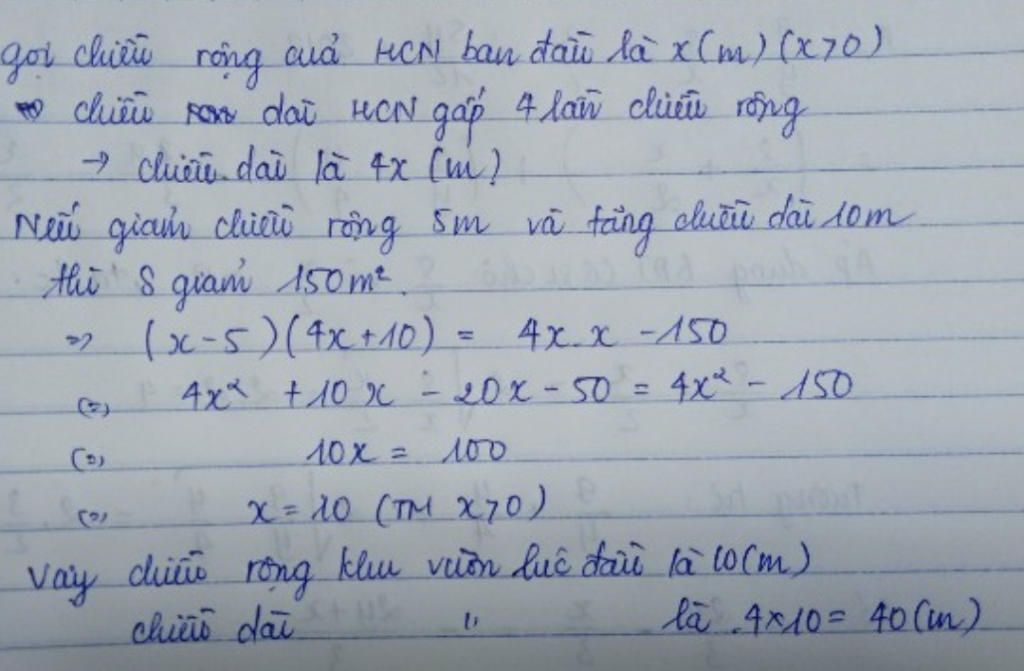 gọi chiều rộng cuả HCN ban đầu là x(m) (x>0)
chiều dài HCN gấp 4 lần chiều rộng
→ chiều dài là 4x (m)
Nếu giảm chiều rộng 5m và tăng chiều dài 10m
thì S giảm 150m².
=> (x-5)(4x+10) = 4x.x -150
(=) 4x² +10x -20x-50 = 4x² - 150
(=) 10x = 100
(=) x=10 (TM x>0)
Vậy chiều rộng khu vườn lúc đầu là 10(m)
chiều dài " là 4x10= 40(m)